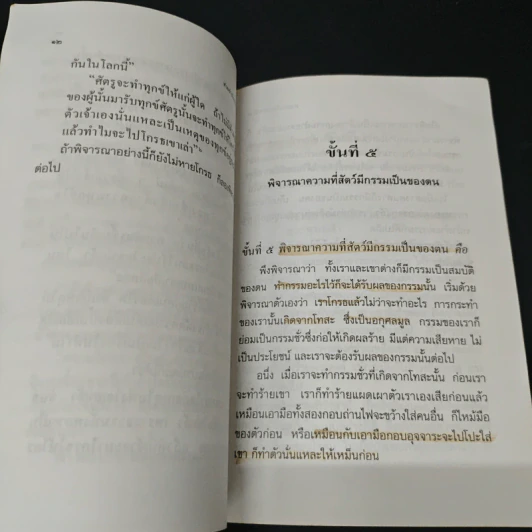 ๑๒
กันในโลกนี้"
"ศัตรูจะทำทุกข์ให้แก่ผู้ใด ถ้าไม่มี
ของผู้นั้นมารับทุกข์ศัตรูนั้นจะทำทุกข์ให้
ตัวเจ้าเองนั่นแหละเป็นเหตุของทุกข์
แล้วทำไมจะไปโกรธเขาเล่า"
ถ้าพิจารณาอย่างนี้ก็ยังไม่หายโกรธ ก็
ต่อไป
ขั้นที่ ๕
พิจารณาความที่สัตว์มีกรรมเป็นของตน
ขั้นที่ ๕ พิจารณาความที่สัตว์มีกรรมเป็นของตน คือ
พึงพิจารณาว่า ทั้งเราและเขาต่างก็มีกรรมเป็นสมบัติ
ของตน ทำกรรมอะไรไว้ก็จะได้รับผลของกรรมนั้น เริ่มด้วย
พิจารณาตัวเองว่า เราโกรธแล้วไม่ว่าจะทำอะไร การกระทำ
ของเรานั้นเกิดจากโทสะ ซึ่งเป็นอกุศลมูล กรรมของเราก็
ย่อมเป็นกรรมชั่วซึ่งก่อให้เกิดผลร้าย มีแต่ความเสียหาย ไม่
เป็นประโยชน์ และเราจะต้องรับผลของกรรมนั้นต่อไป
อนึ่ง เมื่อเราจะทำกรรมชั่วที่เกิดจากโทสะนั้น ก่อนเรา
จะทำร้ายเขา เราก็ทำร้ายแผดเผาตัวเราเองเสียก่อนแล้ว
เหมือนเอามือทั้งสองกอบถ่านไฟจะขว้างใส่คนอื่น ก็ไหม้มือ
ของตัวก่อน หรือเหมือนกับเอามือกอบอุจจาระจะไปโปะใส่
เขา ก็ทำตัวนั่นแหละให้เหม็นก่อน